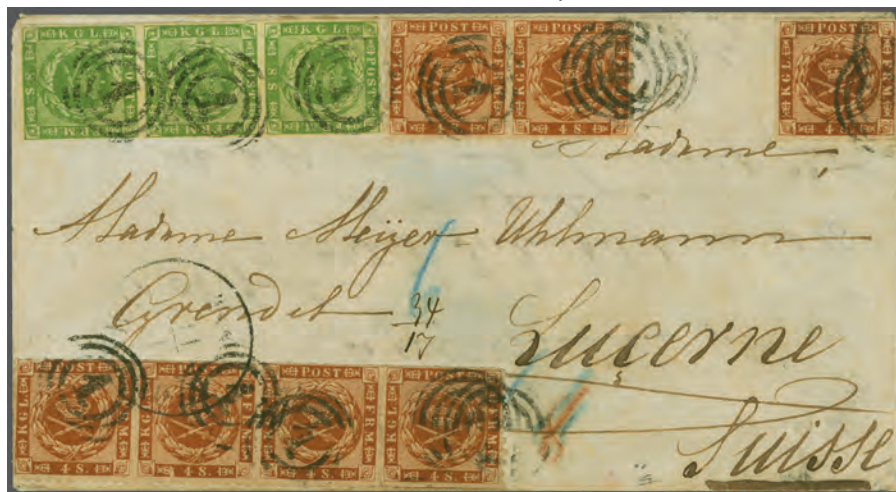 KGL POST FRM 8 S
KGL POST FRM 8 S
KGL POST FRM 8 S
KGL POST FRM 4 S.
KGL POST FRM 4 S.
KGL POST FRM 4 S.
Madame,
Madame Meÿer-Uhlmann
Grendel
34
17
Luçerne
Suisse
KGL POST FRM 4 S.
KGL POST FRM 4 S.
KGL POST FRM 4 S.
KGL POST FRM 4 S.